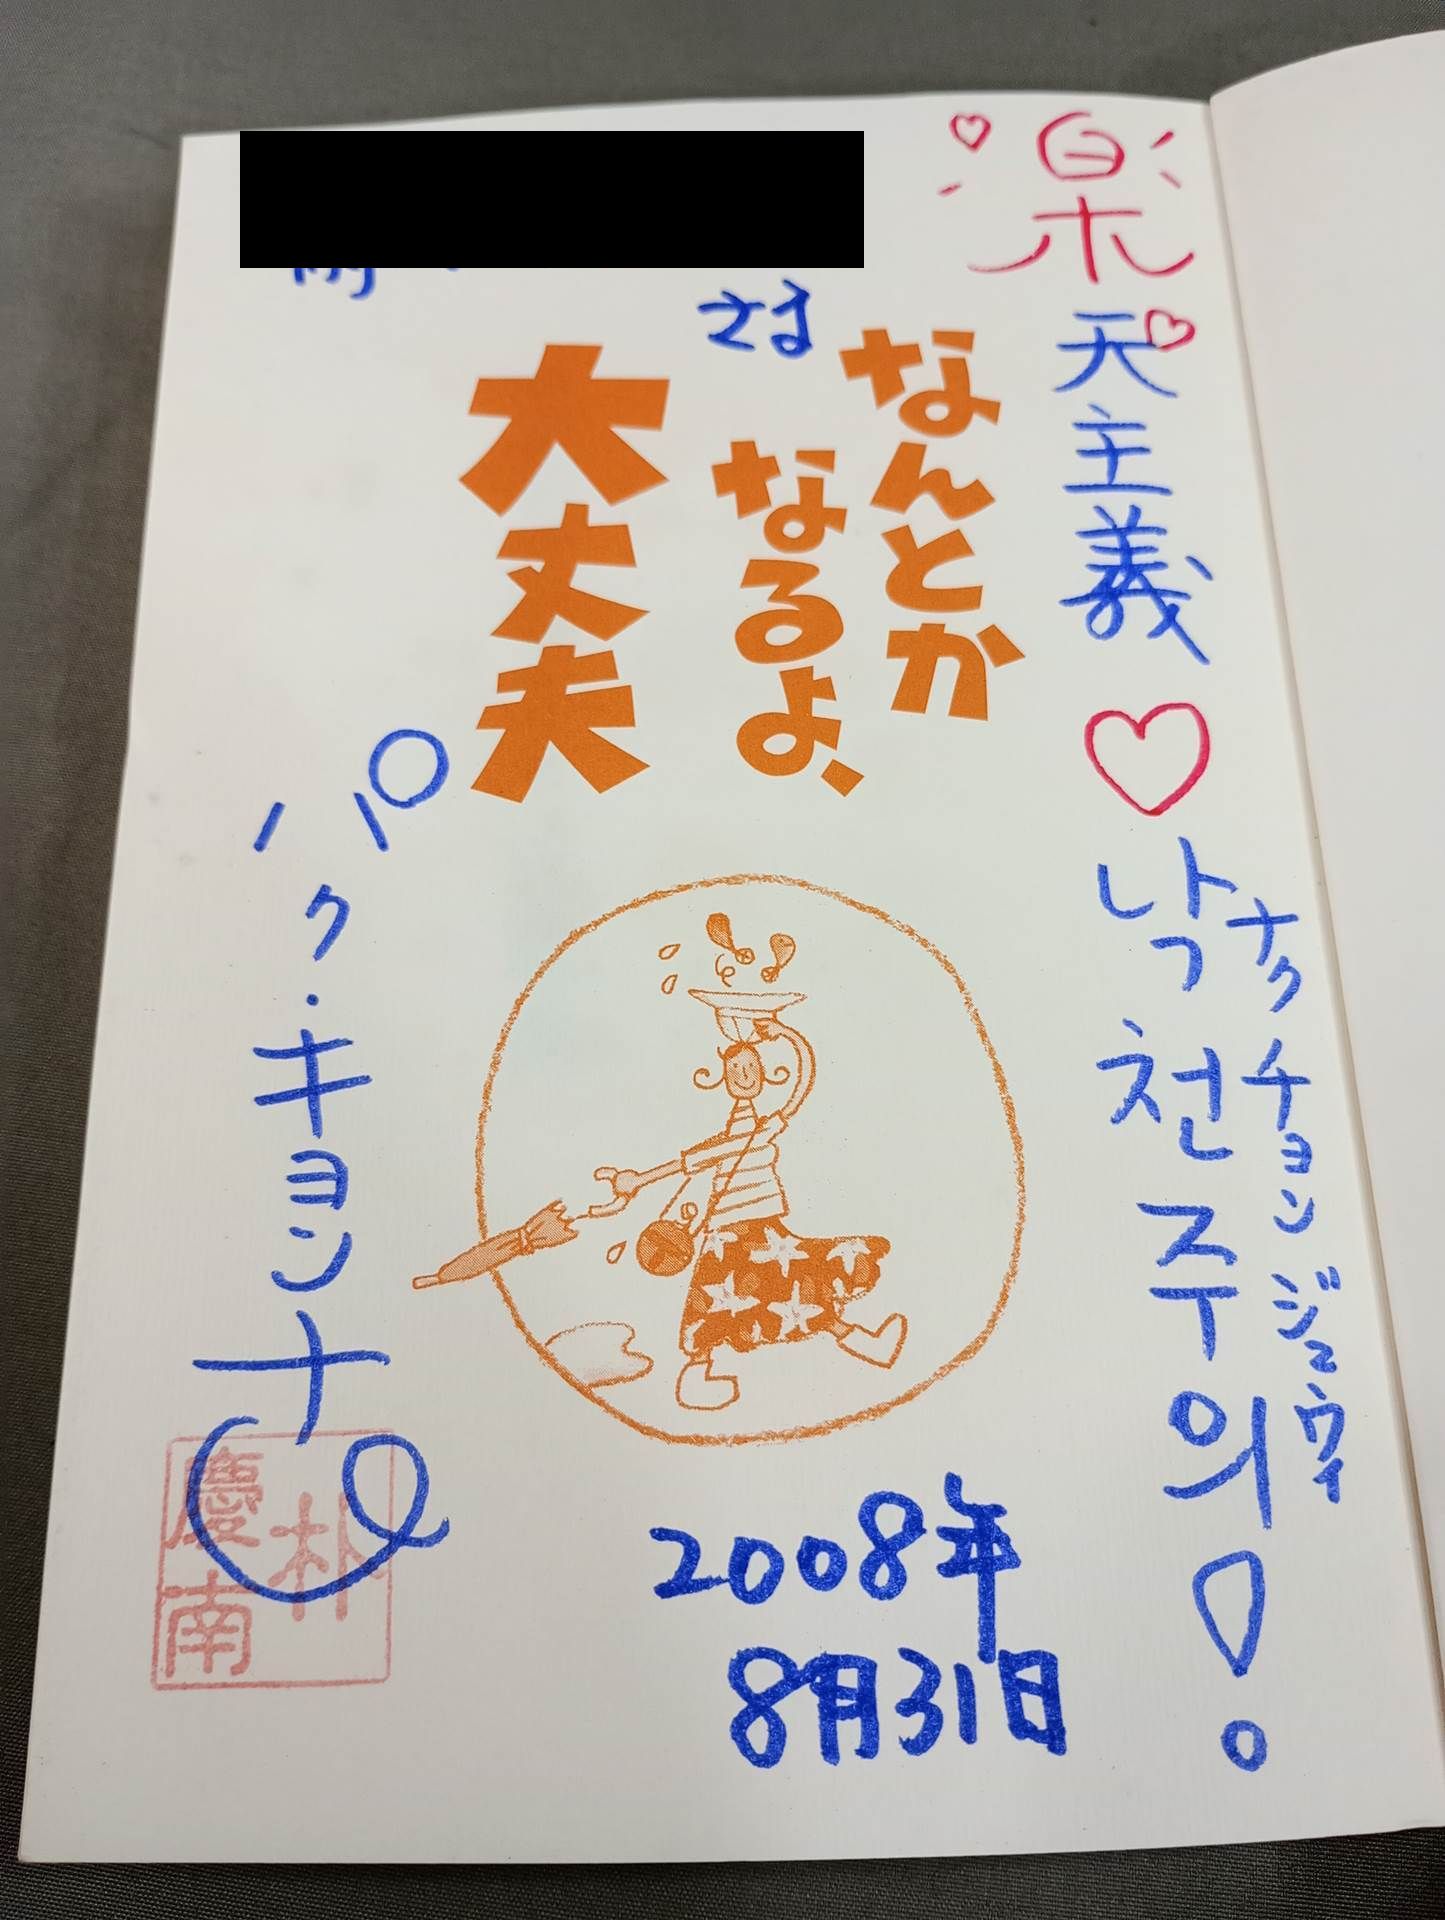 楽天主義
낙천주의!
ナクチョンジュウィ
さま
なんとか
なるよ、
大丈夫
パク・キョンナム
2008年
8月31日
朴
慶南